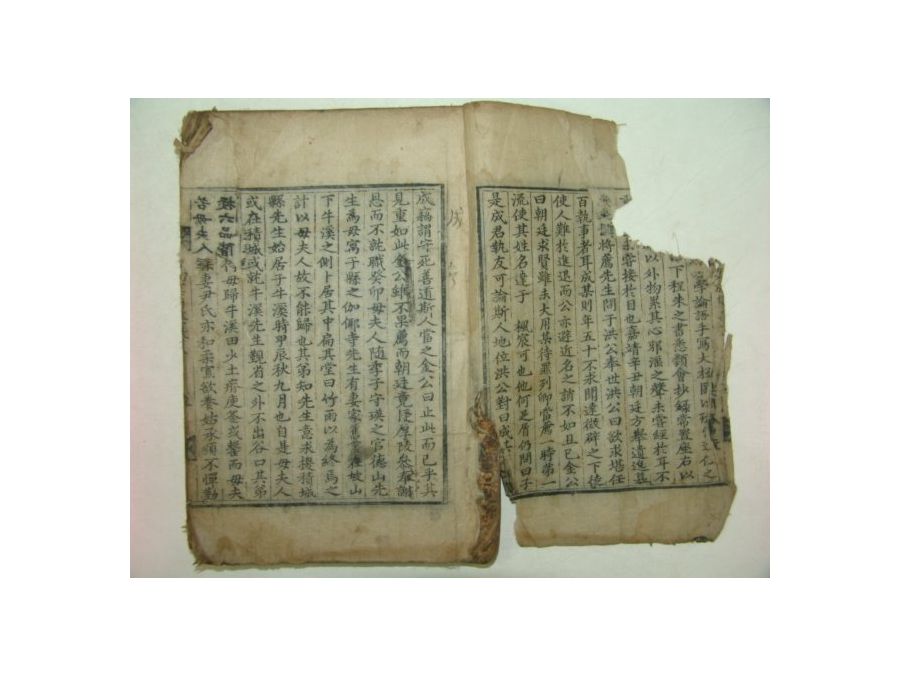 學論語手寫大極圖以硏
下程朱之書悉類會抄錄常置座右以
以外物累其心邪滛之聲未嘗經於耳不
嘗接於目也嘉靖辛丑朝廷方擧遺逸
將薦先生問于洪公奉世洪公曰欲求堪任
百執事者耳成某則年五十不求聞達徵辟之下倍
使人難於進退而公亦避近名之請不如且已金公
曰朝廷求賢雖未大用某待罪列卿當薦一時第一
流使其姓名達于 楓宸可也他何足屑仍問曰子
是成君執友可論斯人地位洪公對曰成某
成竊謂守死善道斯人當之金公曰止此而已乎其
見重如此金公雖不果薦而朝廷竟授厚陵參奉謝
恩而不就職癸卯母夫人隨季子守瑛之官德山先
生爲母寓于縣之伽倻寺先生有妻家舊業在坡山
下牛溪之側卜居其中扁其堂曰竹雨以爲終焉之
計以母夫人故不能歸也其弟知先生意求換積城
縣先生始居于牛溪時甲辰秋九月也自是母夫人
或在積城或就牛溪先生覲省之外不出谷口其弟
母歸牛溪田少土瘠庾釜或罄而母夫
妻尹氏亦和柔寬欲養姑承順不懈勤